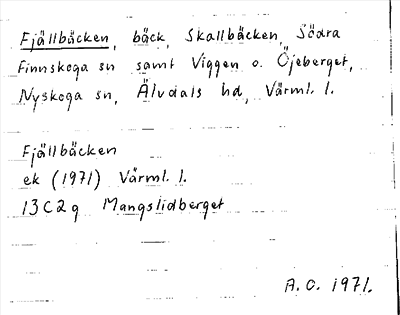 Fjällbäcken, bäck, Skallbäcken, Södra
Finnskoga sn samt Viggen o. Öjeberget,
Nyskoga sn, Älvdals hd, Värml. l.
Fjällbäcken
ek (1971) Värml. l.
13C2g Mangslidberget
A.O. 1971.